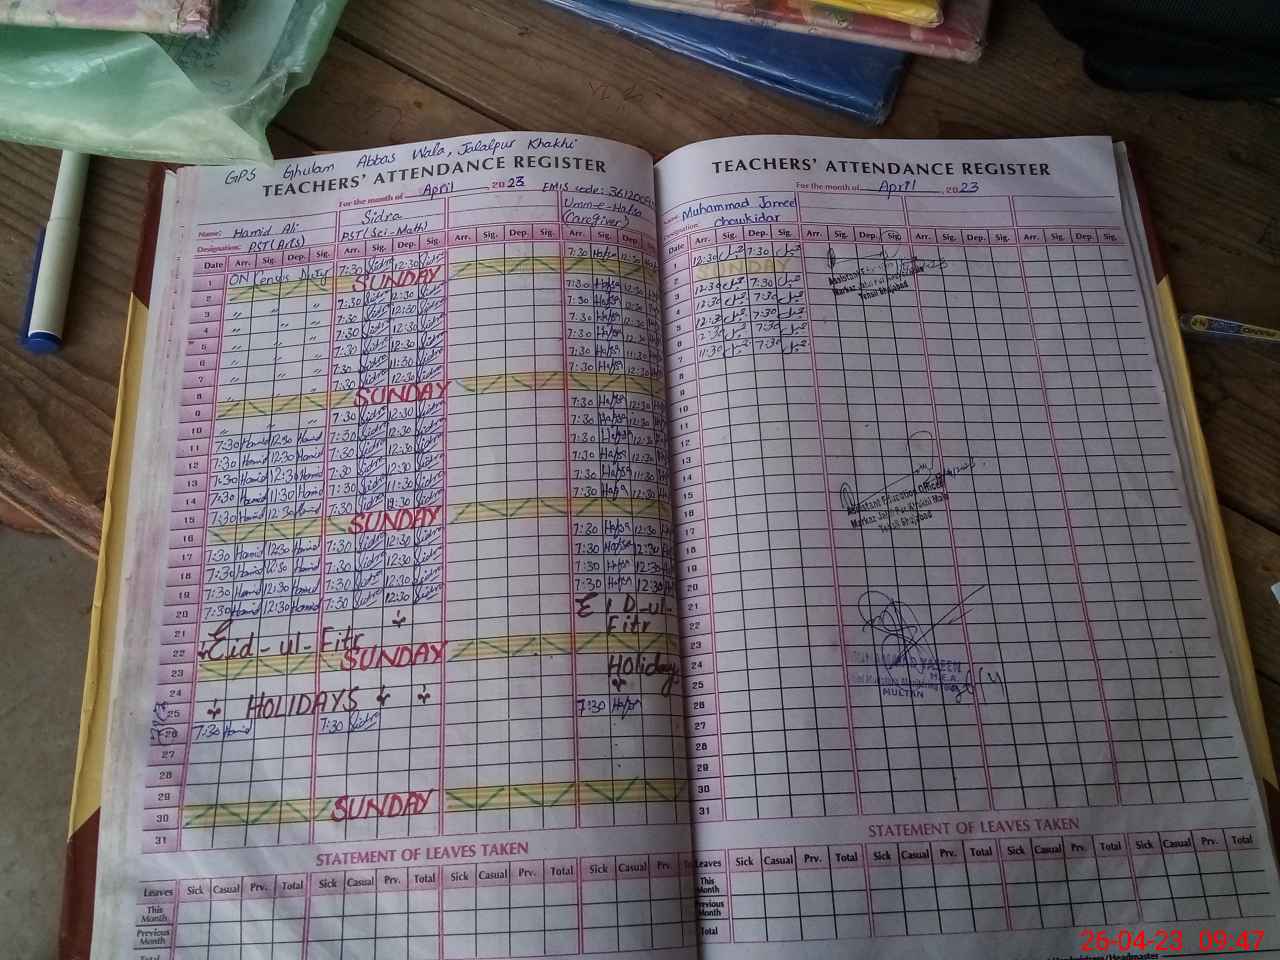 GPS Ghulam Abbas Wala, Jalalpur Khakhi
TEACHERS' ATTENDANCE REGISTER
For the month of April , 2023 EMIS code:
Name: Hamid Ali Sidra Umm-e-Hafsa
Designation: PST(Arts) PST(Sci-Math) (Caregiver)
Date Arr. Sig. Dep. Sig. Arr. Sig. Dep. Sig. Arr. Sig. Dep. Sig. Arr. Sig. Dep. Sig.
1 ON Census Duty 7:30 Sidra 12:30 Sidra 7:30 Hafsa 12:30
2 SUNDAY
3 " " 7:30 Sidra 12:30 Sidra 7:30 Hafsa 12:30
4 " " 7:30 Sidra 12:30 Sidra 7:30 Hafsa 12:30
5 " " 7:30 Sidra 12:30 Sidra 7:30 Hafsa 12:30
6 " " 7:30 Sidra 12:30 Sidra 7:30 Hafsa 12:30
7 " " 7:30 Sidra 11:30 Sidra 7:30 Hafsa 11:30
8 " " 7:30 Sidra 12:30 Sidra 7:30 Hafsa 12:30
9 SUNDAY
10 " " 7:30 Sidra 12:30 Sidra 7:30 Hafsa 12:30
11 7:30 Hamid 12:30 Hamid 7:30 Sidra 12:30 Sidra 7:30 Hafsa 12:30
12 7:30 Hamid 12:30 Hamid 7:30 Sidra 12:30 Sidra 7:30 Hafsa 12:30
13 7:30 Hamid 12:30 Hamid 7:30 Sidra 12:30 Sidra 7:30 Hafsa 12:30
14 7:30 Hamid 11:30 Hamid 7:30 Sidra 11:30 Sidra 7:30 Hafsa 11:30
15 7:30 Hamid 12:30 Hamid 7:30 Sidra 12:30 Sidra 7:30 Hafsa 12:30
16 SUNDAY
17 7:30 Hamid 12:30 Hamid 7:30 Sidra 12:30 Sidra 7:30 Hafsa 12:30
18 7:30 Hamid 12:30 Hamid 7:30 Sidra 12:30 Sidra 7:30 Hafsa 12:30
19 7:30 Hamid 12:30 Hamid 7:30 Sidra 12:30 Sidra 7:30 Hafsa 12:30
20 7:30 Hamid 12:30 Hamid 7:30 Sidra 12:30 Sidra 7:30 Hafsa 12:30
21 EID-ul-
22 Eid-ul-Fitr Fitr
23 SUNDAY
24 Holiday
25 HOLIDAYS
26 7:30 Hamid 7:30 Sidra 7:30 Hafsa
27
28
29
30 SUNDAY
31
STATEMENT OF LEAVES TAKEN
Leaves Sick Casual Prv. Total Sick Casual Prv. Total Sick Casual Prv. Total Sick Casual Prv.
This Month
Previous Month
Total
TEACHERS' ATTENDANCE REGISTER
For the month of April , 2023
Name: Muhammad Jameel
Designation: Chowkidar
Date Arr. Sig. Dep. Sig. Arr. Sig. Dep. Sig. Arr. Sig. Dep. Sig. Arr. Sig. Dep. Sig.
1 12:30 7:30
2 SUNDAY
3 12:30 7:30
4 12:30 7:30
5 12:30 7:30
6 12:30 7:30
7 11:30 7:30
8
9
10
11
12
13
14
15
16
17
18
19
20
21
22
23
24
25
26
27
28
29
30
31
Assistant Education Officer
Tehsil Shujabad
MULTAN
STATEMENT OF LEAVES TAKEN
Leaves Sick Casual Prv. Total Sick Casual Prv. Total Sick Casual Prv. Total Sick Casual Prv. Total
This Month
Previous Month
Total
26-04-23 09:47